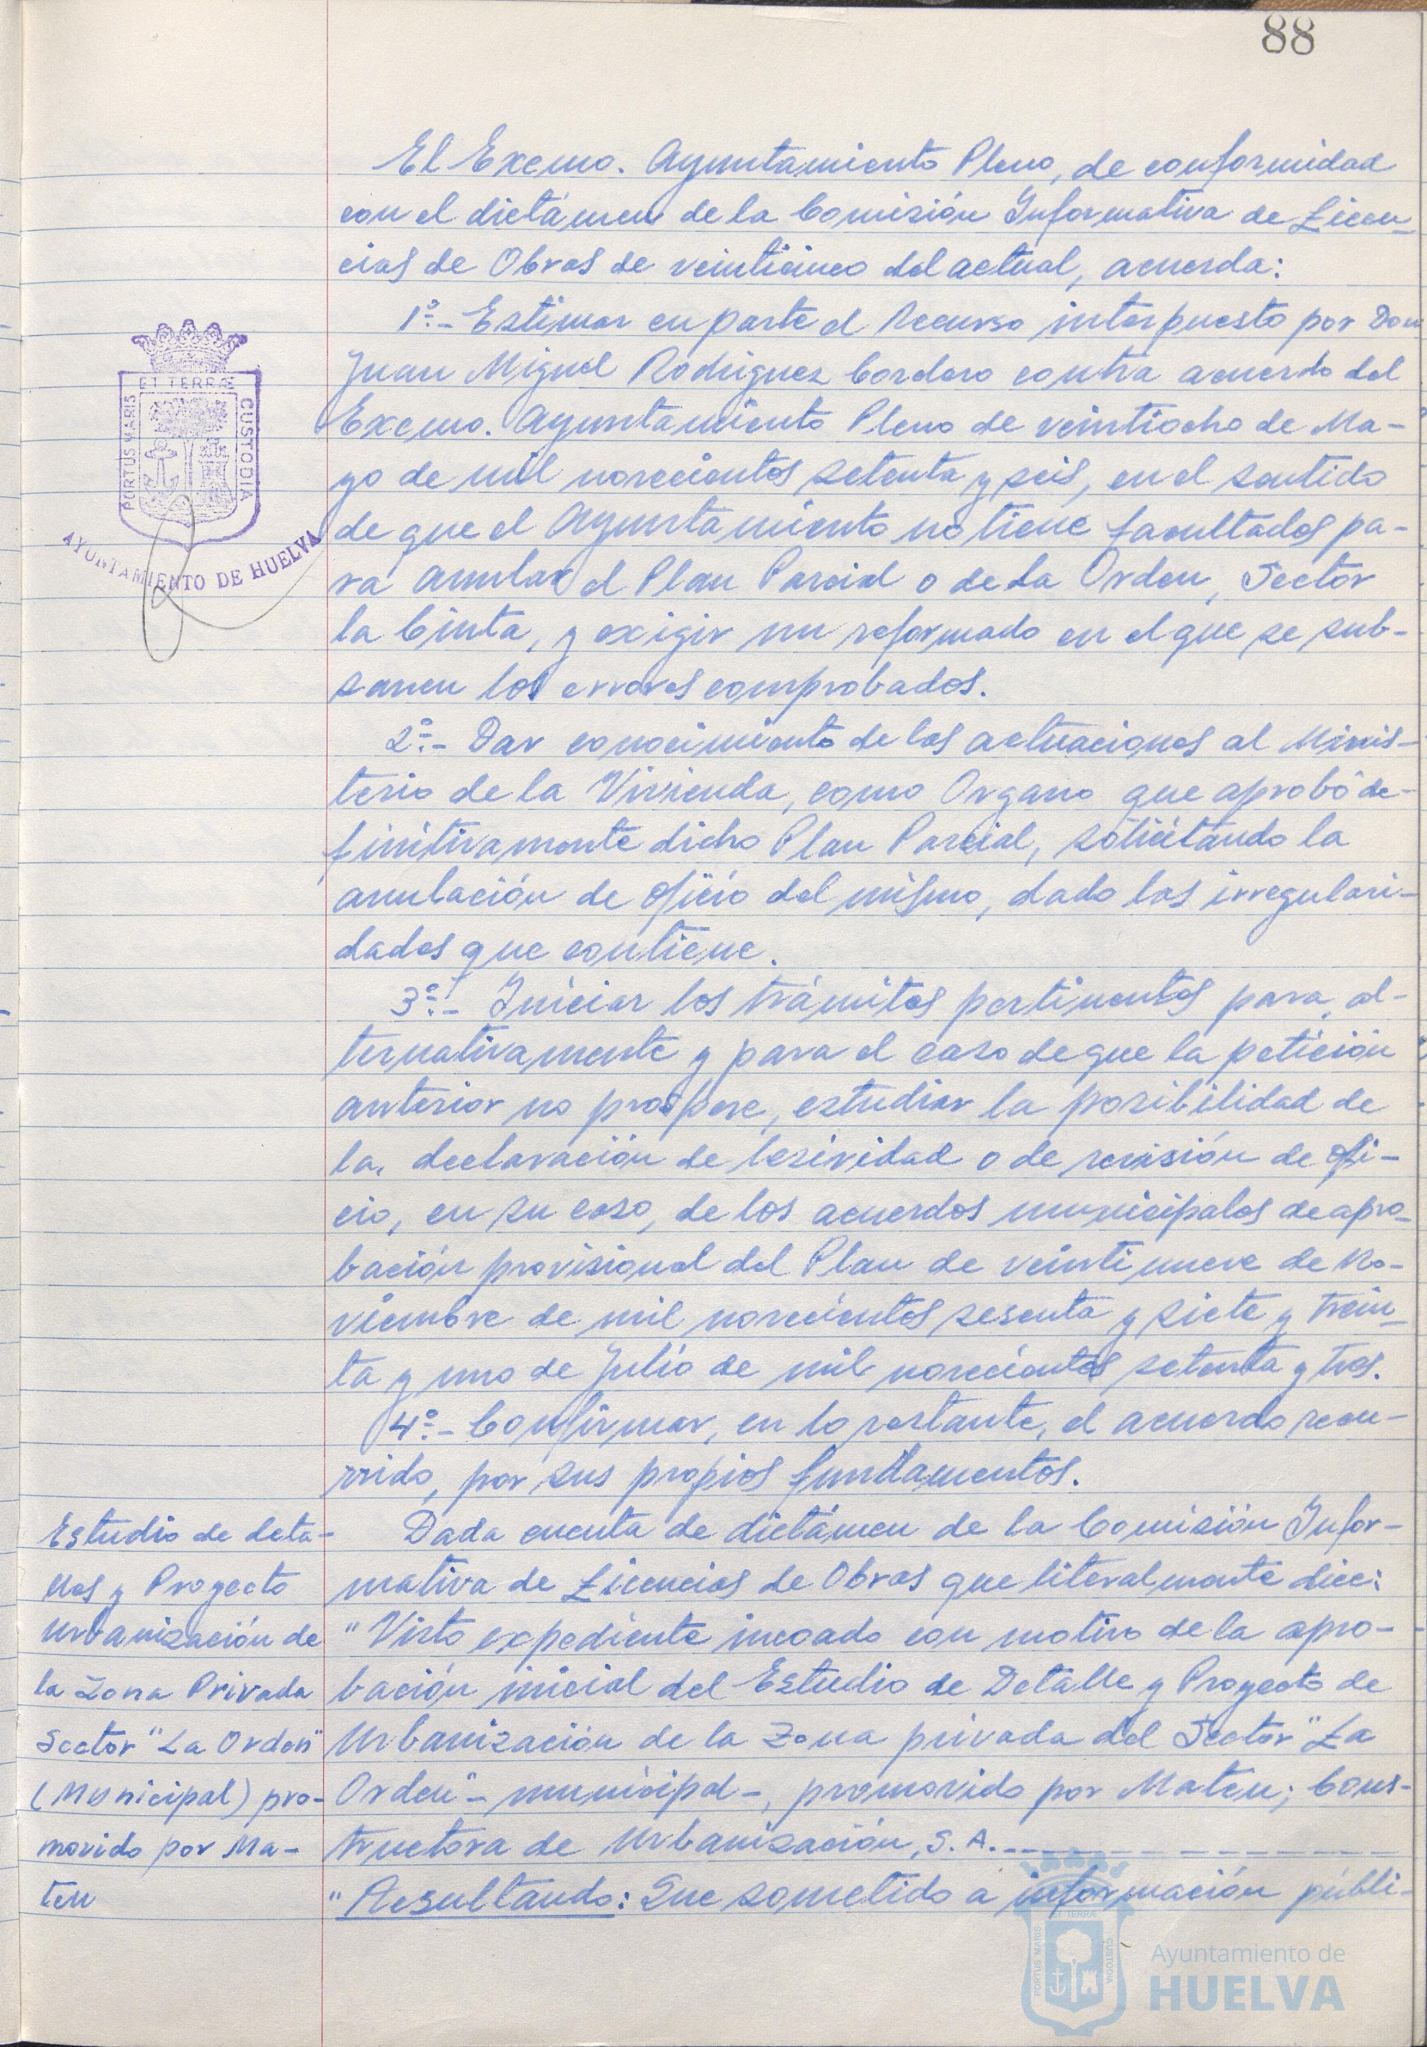 88
El Excmo. Ayuntamiento Pleno, de conformidad
con el dictámen de la Comisión Informativa de Licen-
cias de Obras de veinticinco del actual, acuerda:
1º.- Estimar en parte el Recurso interpuesto por Don
Juan Miguel Rodriguez Cordero contra acuerdo del
Excmo. Ayuntamiento Pleno de veintiocho de Ma-
yo de mil novecientos setenta y seis, en el sentido
de que el Ayuntamiento no tiene facultades pa-
ra anular el Plan Parcial o de La Orden, Sector
la Cinta, y exigir un reformado en el que se sub-
sanen los errores comprobados.
2º.- Dar conocimiento de las actuaciones al Minis-
terio de la Vivienda, como Organo que aprobó de-
finitivamente dicho Plan Parcial, solicitando la
anulación de oficio del mismo, dado las irregulari-
dades que contiene.
3º.- Iniciar los trámites pertinentes para, al-
ternativamente y para el caso de que la petición
anterior no prospere, estudiar la posibilidad de
la declaración de lesividad o de revisión de ofi-
cio, en su caso, de los acuerdos municipales de apro-
bación provisional del Plan de veintinueve de No-
viembre de mil novecientos sesenta y siete y trein-
ta y uno de Julio de mil novecientos setenta y tres.
4º.- Confirmar, en lo restante, el acuerdo recu-
rrido, por sus propios fundamentos.
Dada cuenta de dictámen de la Comisión Infor-
mativa de Licencias de Obras que literalmente dice:
"Visto expediente incoado con motivo de la apro-
bación inicial del Estudio de Detalle y Proyecto de
Urbanización de la Zona privada del Sector "La
Orden"- municipal-, promovido por Mateu; Cons-
tructora de Urbanización, S.A.
"Resultando: Que sometido a información públi-
Estudio de deta-
lles y Proyecto
Urbanización de
la Zona Privada
Sector "La Orden"
(Municipal) pro-
movido por Ma-
teu
PORTUS MARIS
ET TERRÆ
CUSTODIA
AYUNTAMIENTO DE HUELVA
PORTUS MARIS
ET TERRÆ
CUSTODIA
Ayuntamiento de
HUELVA